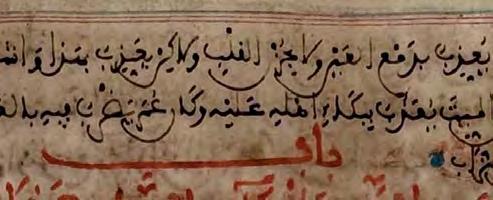 يعذب بدمع العين ولا بحزن القلب ولاكن يعذب بهذا وا
الميت يعذب ببكاء اهله عليه وكان عمر يضرب فيه بالع
تراب
باب